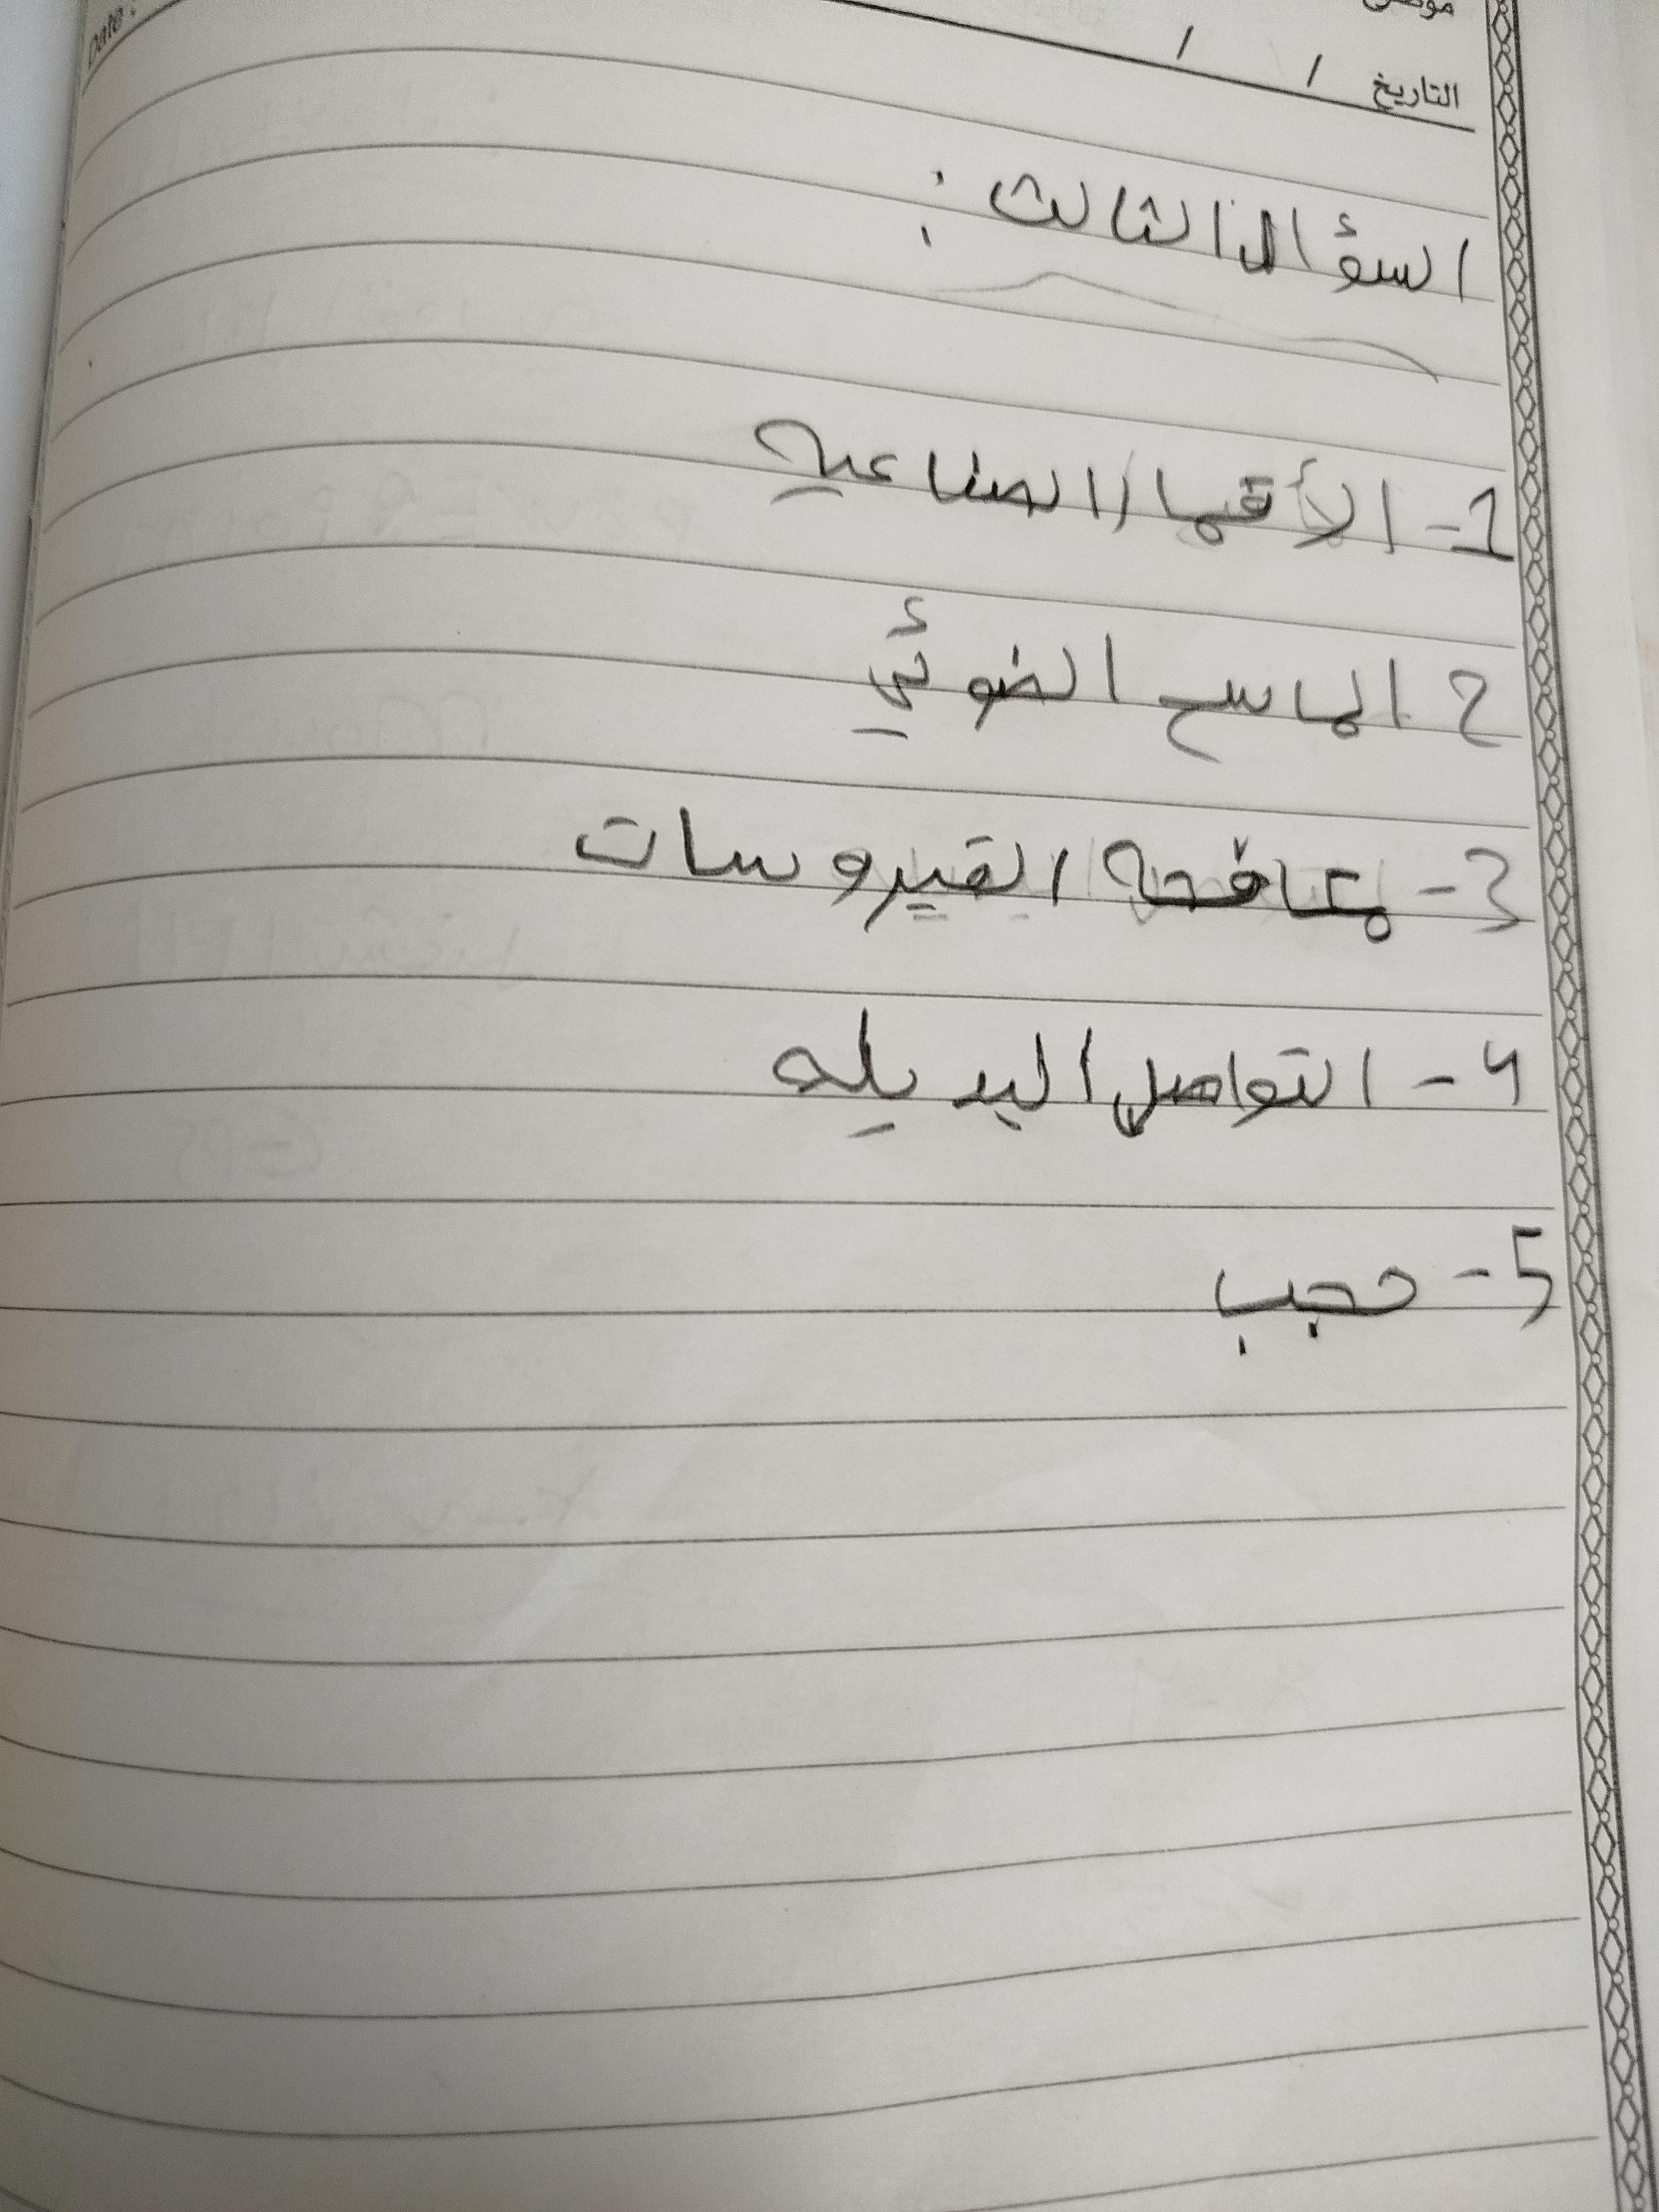 Date :
التاريخ / /
السؤال الثالث :
1- الأقمار الصناعيه
2 الماسح الضوئي
3- مكافحه الفيروسات
4- التواصل البديله
5- حجب